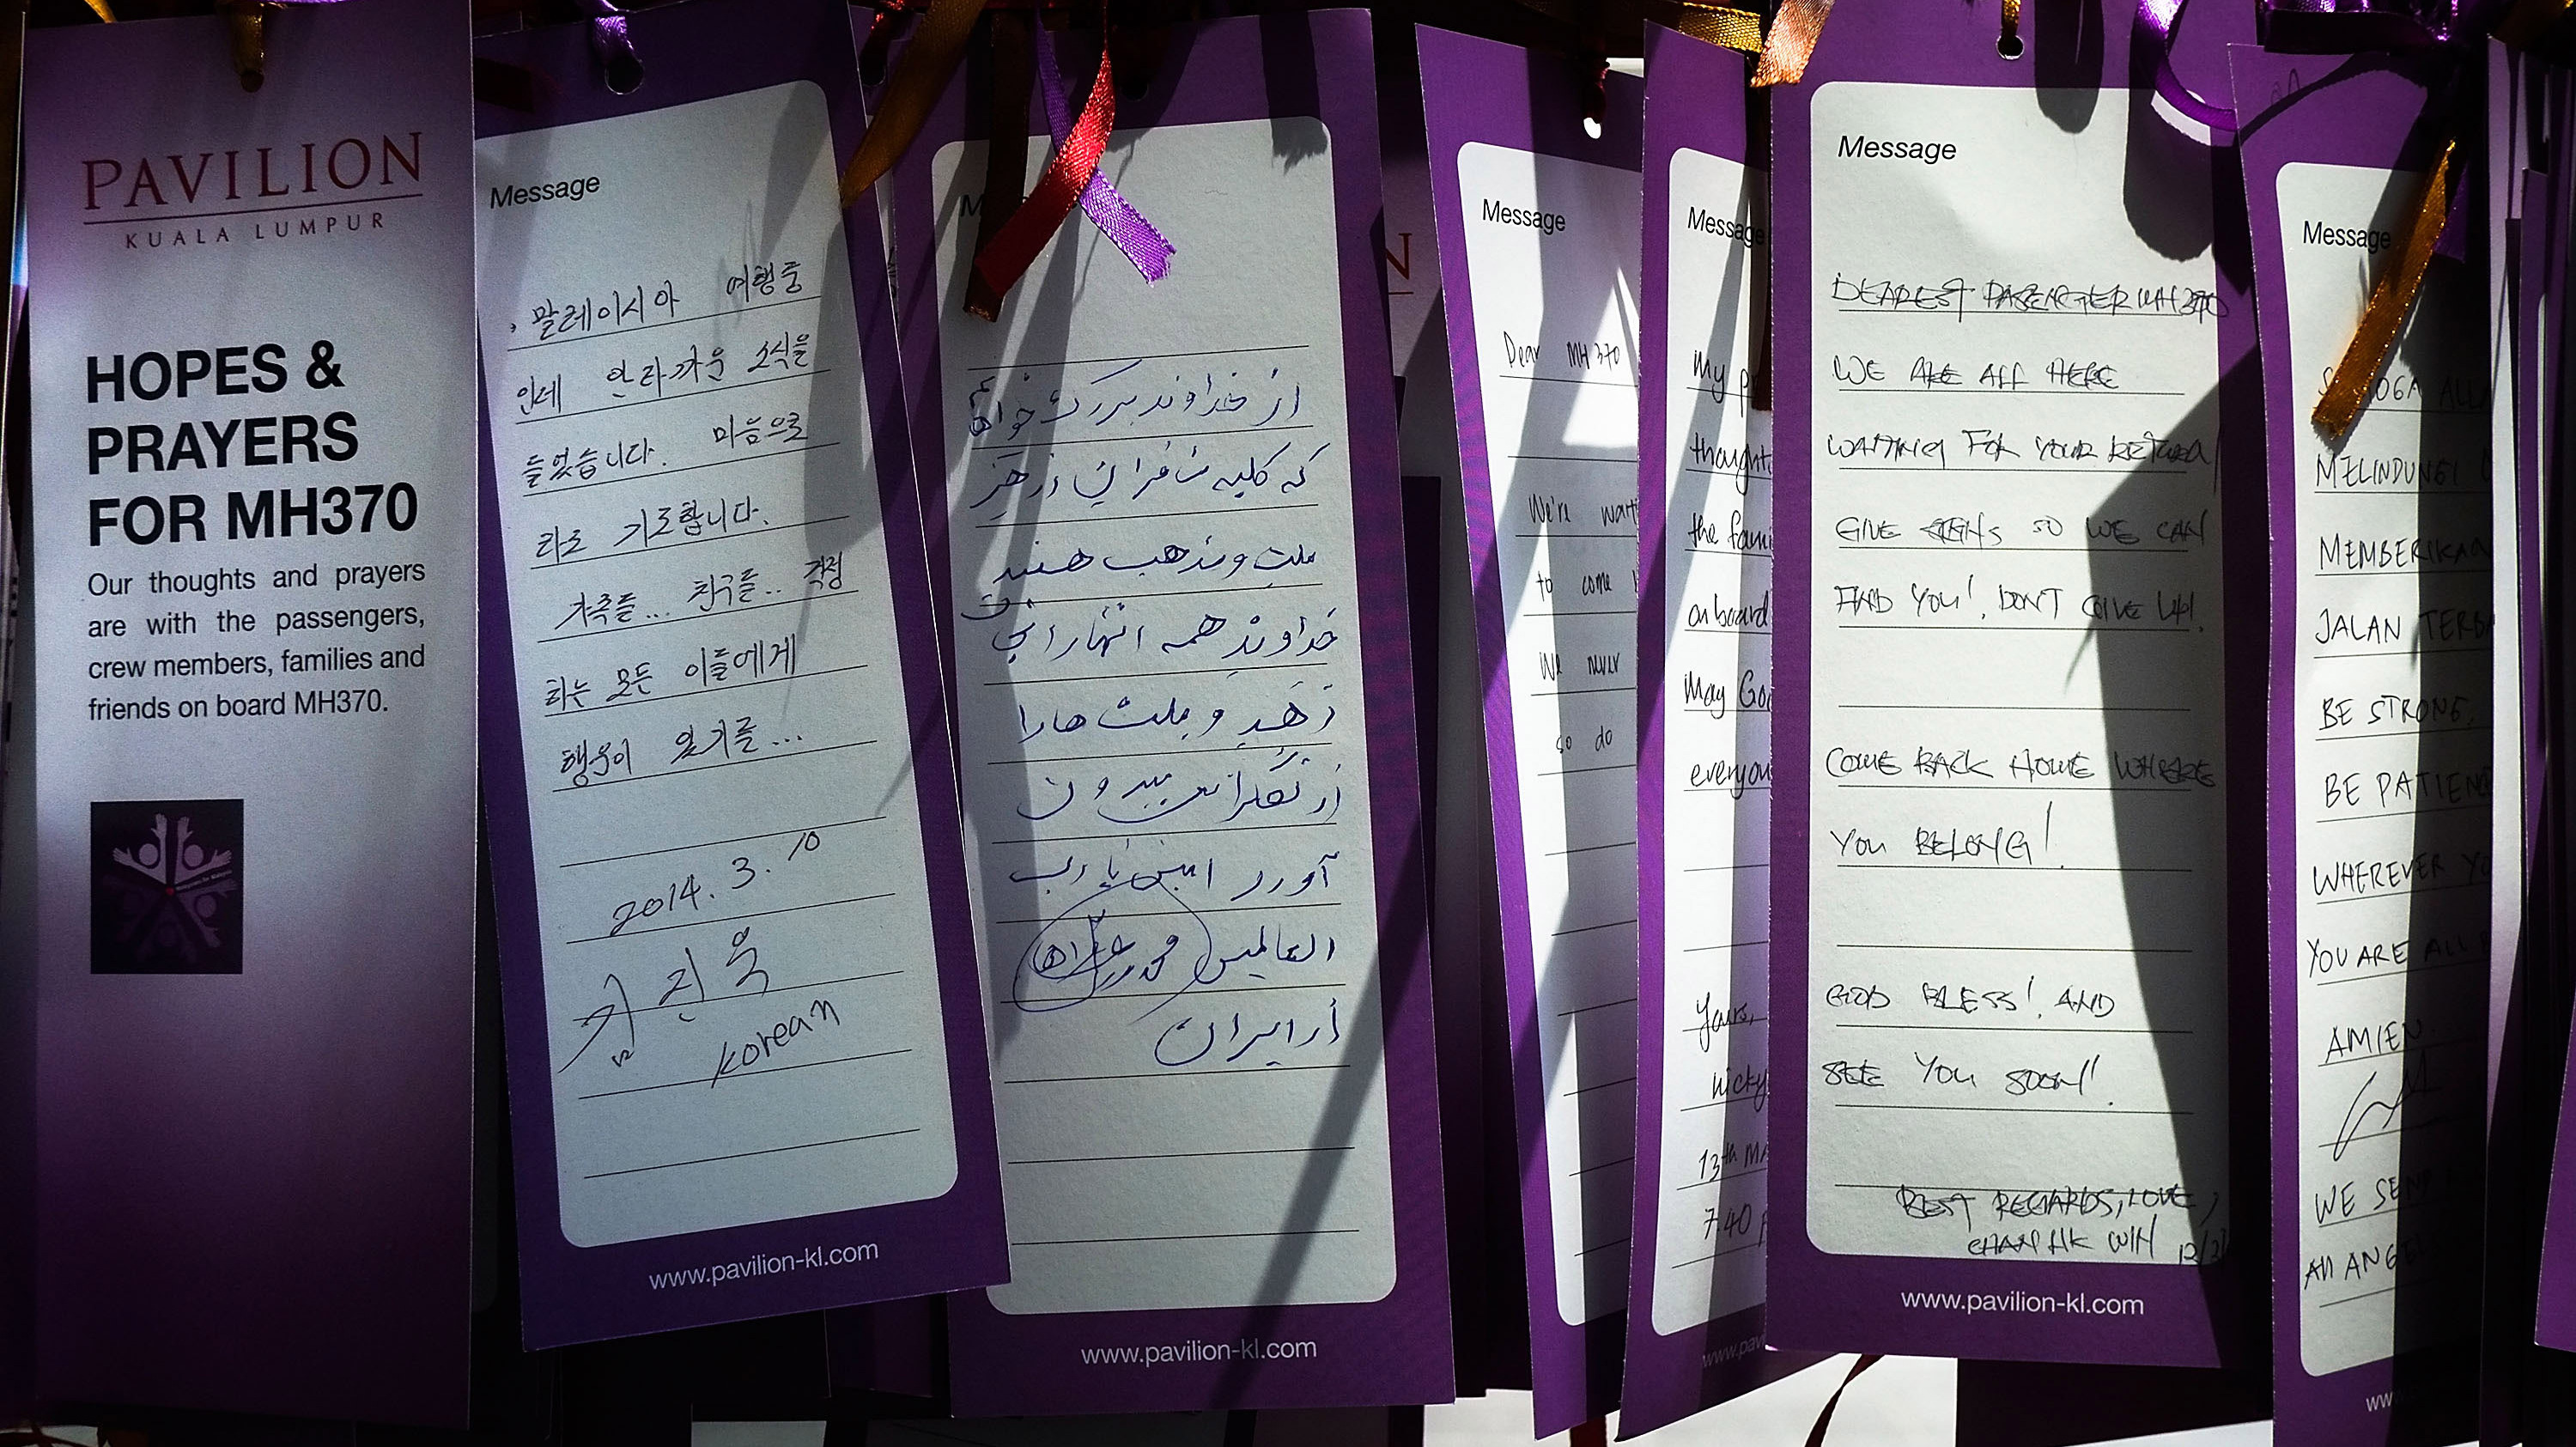 PAVILION
KUALA LUMPUR
HOPES &
PRAYERS
FOR MH370
Our thoughts and prayers
are with the passengers,
crew members, families and
friends on board MH370.
Message
말레이시아 여행중
인데 안타까운 소식을
들었습니다. 마음으로
기도합니다.
가족들... 친구들.. 걱정
하는 모든 이들에게
행운이 있기를...
2014. 3. 10
김진욱
Korean
www.pavilion-kl.com
از خداوند بزرگ خواهم
که کلیه مسافرانی از هر
ملت و مذهب هستند
خداوند همه آنها را نجات
دهد و ملت ها را
از نگرانی بیرون
آورد امین یا رب
العالمین
از ایران
www.pavilion-kl.com
Message
Dear MH370
We're
to come
We never
so do
Message
My
the
on board
May
Yours,
Nicky
13th
7.40
Message
DEAREST PASSENGER MH370
WE ARE ALL HERE
WAITING FOR YOUR RETURN
GIVE SIGNS SO WE CAN
FIND YOU! DON'T GIVE UP!
COME BACK HOME WHERE
YOU BELONG!
GOD BLESS! AND
SEE YOU SOON!
BEST REGARDS, LOVE,
www.pavilion-kl.com
Message
MELINDUNGI
JALAN
BE STRONG,
BE
WHEREVER
YOU ARE ALL
AMIEN
WE
AN